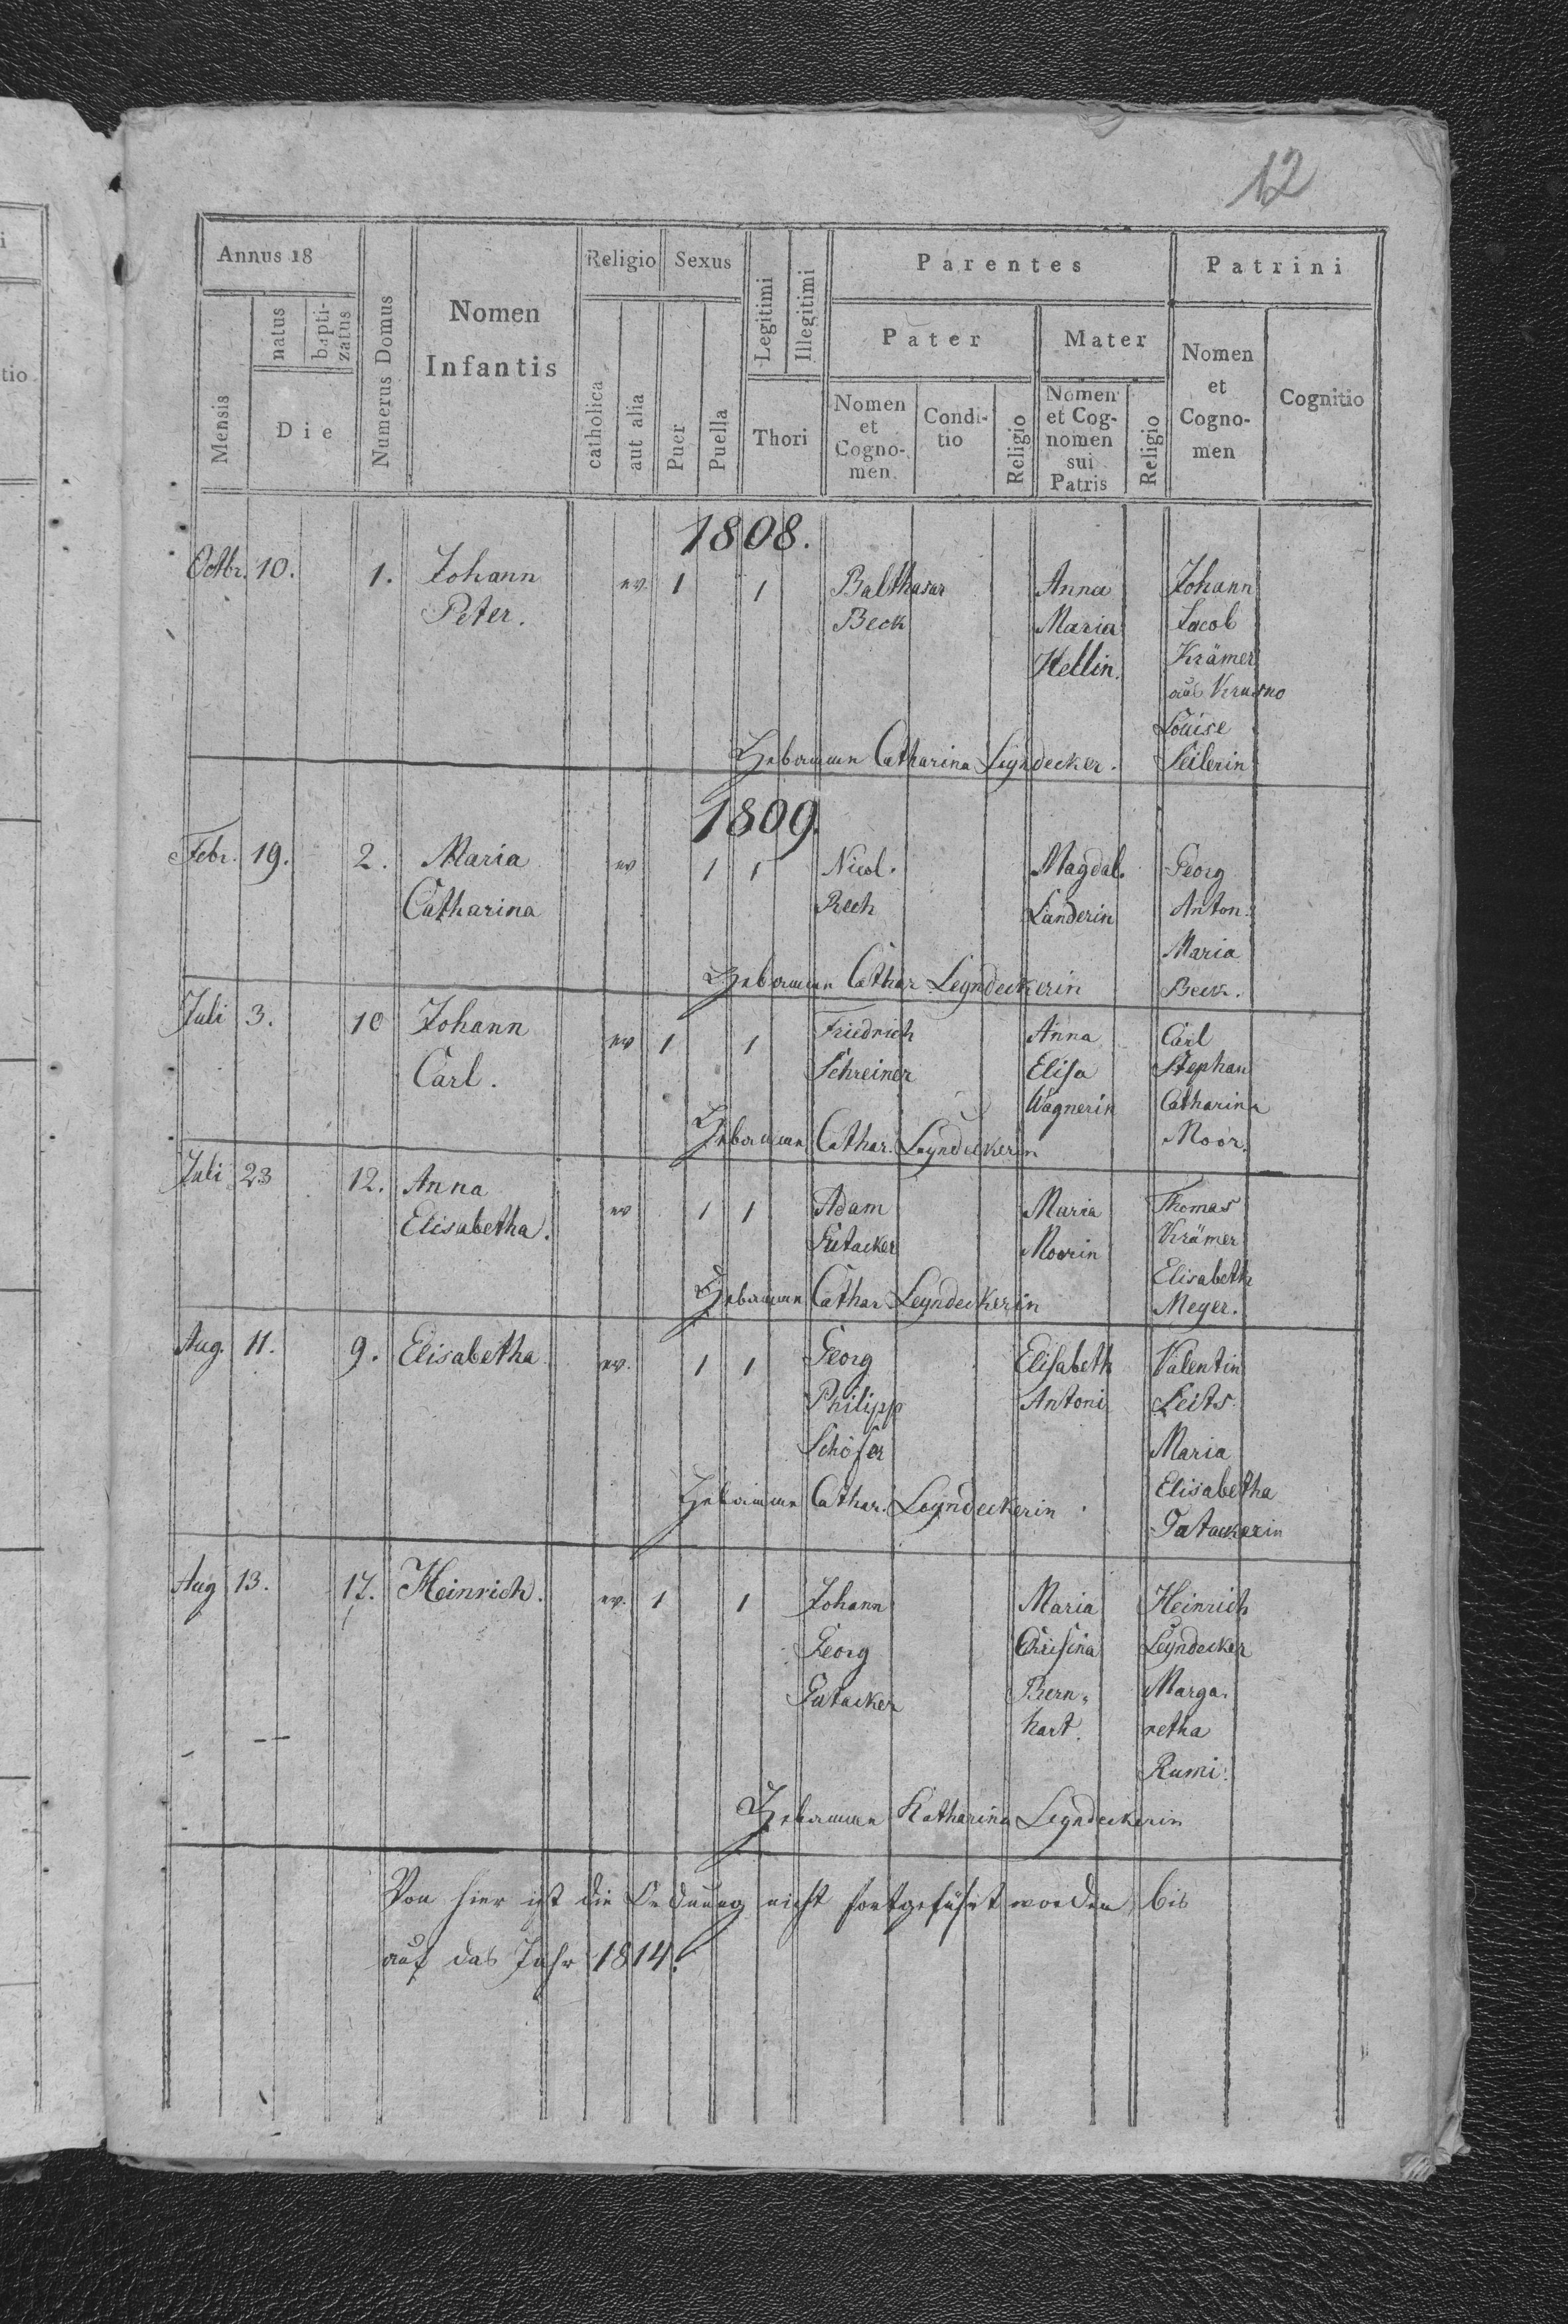 12
Annus 18
Mensis
natus
bapti-
zatus
Die
Numerus Domus
Nomen
Infantis
Religio
catholica
aut alia
Sexus
Puer
Puella
Legitimi
Illegitimi
Thori
Parentes
Pater
Nomen
et
Cogno-
men
Condi-
tio
Religio
Mater
Nomen
et Cog-
nomen
sui
Patris
Religio
Patrini
Nomen
et
Cogno-
men
Cognitio
i
tio
1808.
Octbr. 10. 1. Johann ev. 1 1 Balthasar Anna Johann
Peter. Beck Maria Jacob
Hellin. Krämer
aus
Louise
Hebamme Catharina Leyndecker. Seilerin
1809.
Febr. 19. 2. Maria ev 1 1 Nicol. Magdal. Georg
Catharina Rech Landerin Anton.
Maria
Hebamme Cathar Leyndeckerin Beck.
Juli 3. 10 Johann ev 1 1 Friedrich Anna Carl
Carl. Schreiner Elisa Stephan
Wagnerin Catharina
Hebamme Cathar. Leyndeckerin Moor.
Juli 23 12. Anna ev 1 1 Adam Maria Thomas
Elisabetha. Gutacker Moorin Krämer
Elisabeth
Hebamme Cathar Leyndeckerin Meyer.
Aug. 11. 9. Elisabetha ev. 1 1 Georg Elisabeth Valentin
Philipp Antoni Seits
Schöfer Maria
Elisabetha
Hebamme Cathar. Leyndeckerin
Aug 13. 17. Heinrich. ev. 1 1 Johann Maria Heinrich
Georg Leyndecker
Gutacker Bern- Marga-
hart. retha
Rumi.
Hebamme Katharina Leyndeckerin
Von hier ist die Ordnung nicht fortgeführt worden, bis
auf das Jahr 1814.